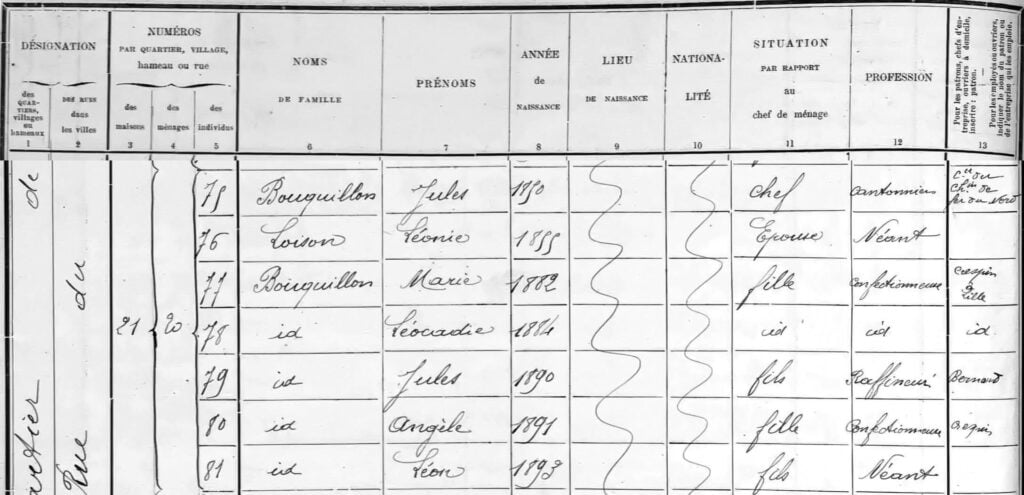 DÉSIGNATION
NUMÉROS
PAR QUARTIER, VILLAGE,
hameau ou rue
NOMS
DE FAMILLE
PRÉNOMS
ANNÉE
de
NAISSANCE
LIEU
DE NAISSANCE
NATIONA-
LITÉ
SITUATION
PAR RAPPORT
au
chef de ménage
PROFESSION
Pour les patrons, chefs d'en-
treprise, ouvriers à domicile,
inscrire : patron.
Pour les employés ou ouvriers,
indiquer le nom du patron ou
de l'entreprise qui les emploie.
des
QUAR-
TIERS,
villages
ou
hameaux
DES RUES
dans
les villes
des
maisons
des
ménages
des
individus
1 2 3 4 5 6 7 8 9 10 11 12 13
artier de
Rue du
21 20
75 Bouquillon Jules 1850 chef Cantonnier Cie du
Chin de
fer du Nord
76 Loison Léonie 1855 Epouse Néant
77 Bouquillon Marie 1882 fille Confectionneuse Crespin
à
Lille
78 id Léocadie 1884 id id id
79 id Jules 1890 fils Raffineur Bernard
80 id Angèle 1891 fille Confectionneuse Crespin
81 id Léon 1893 fils Néant